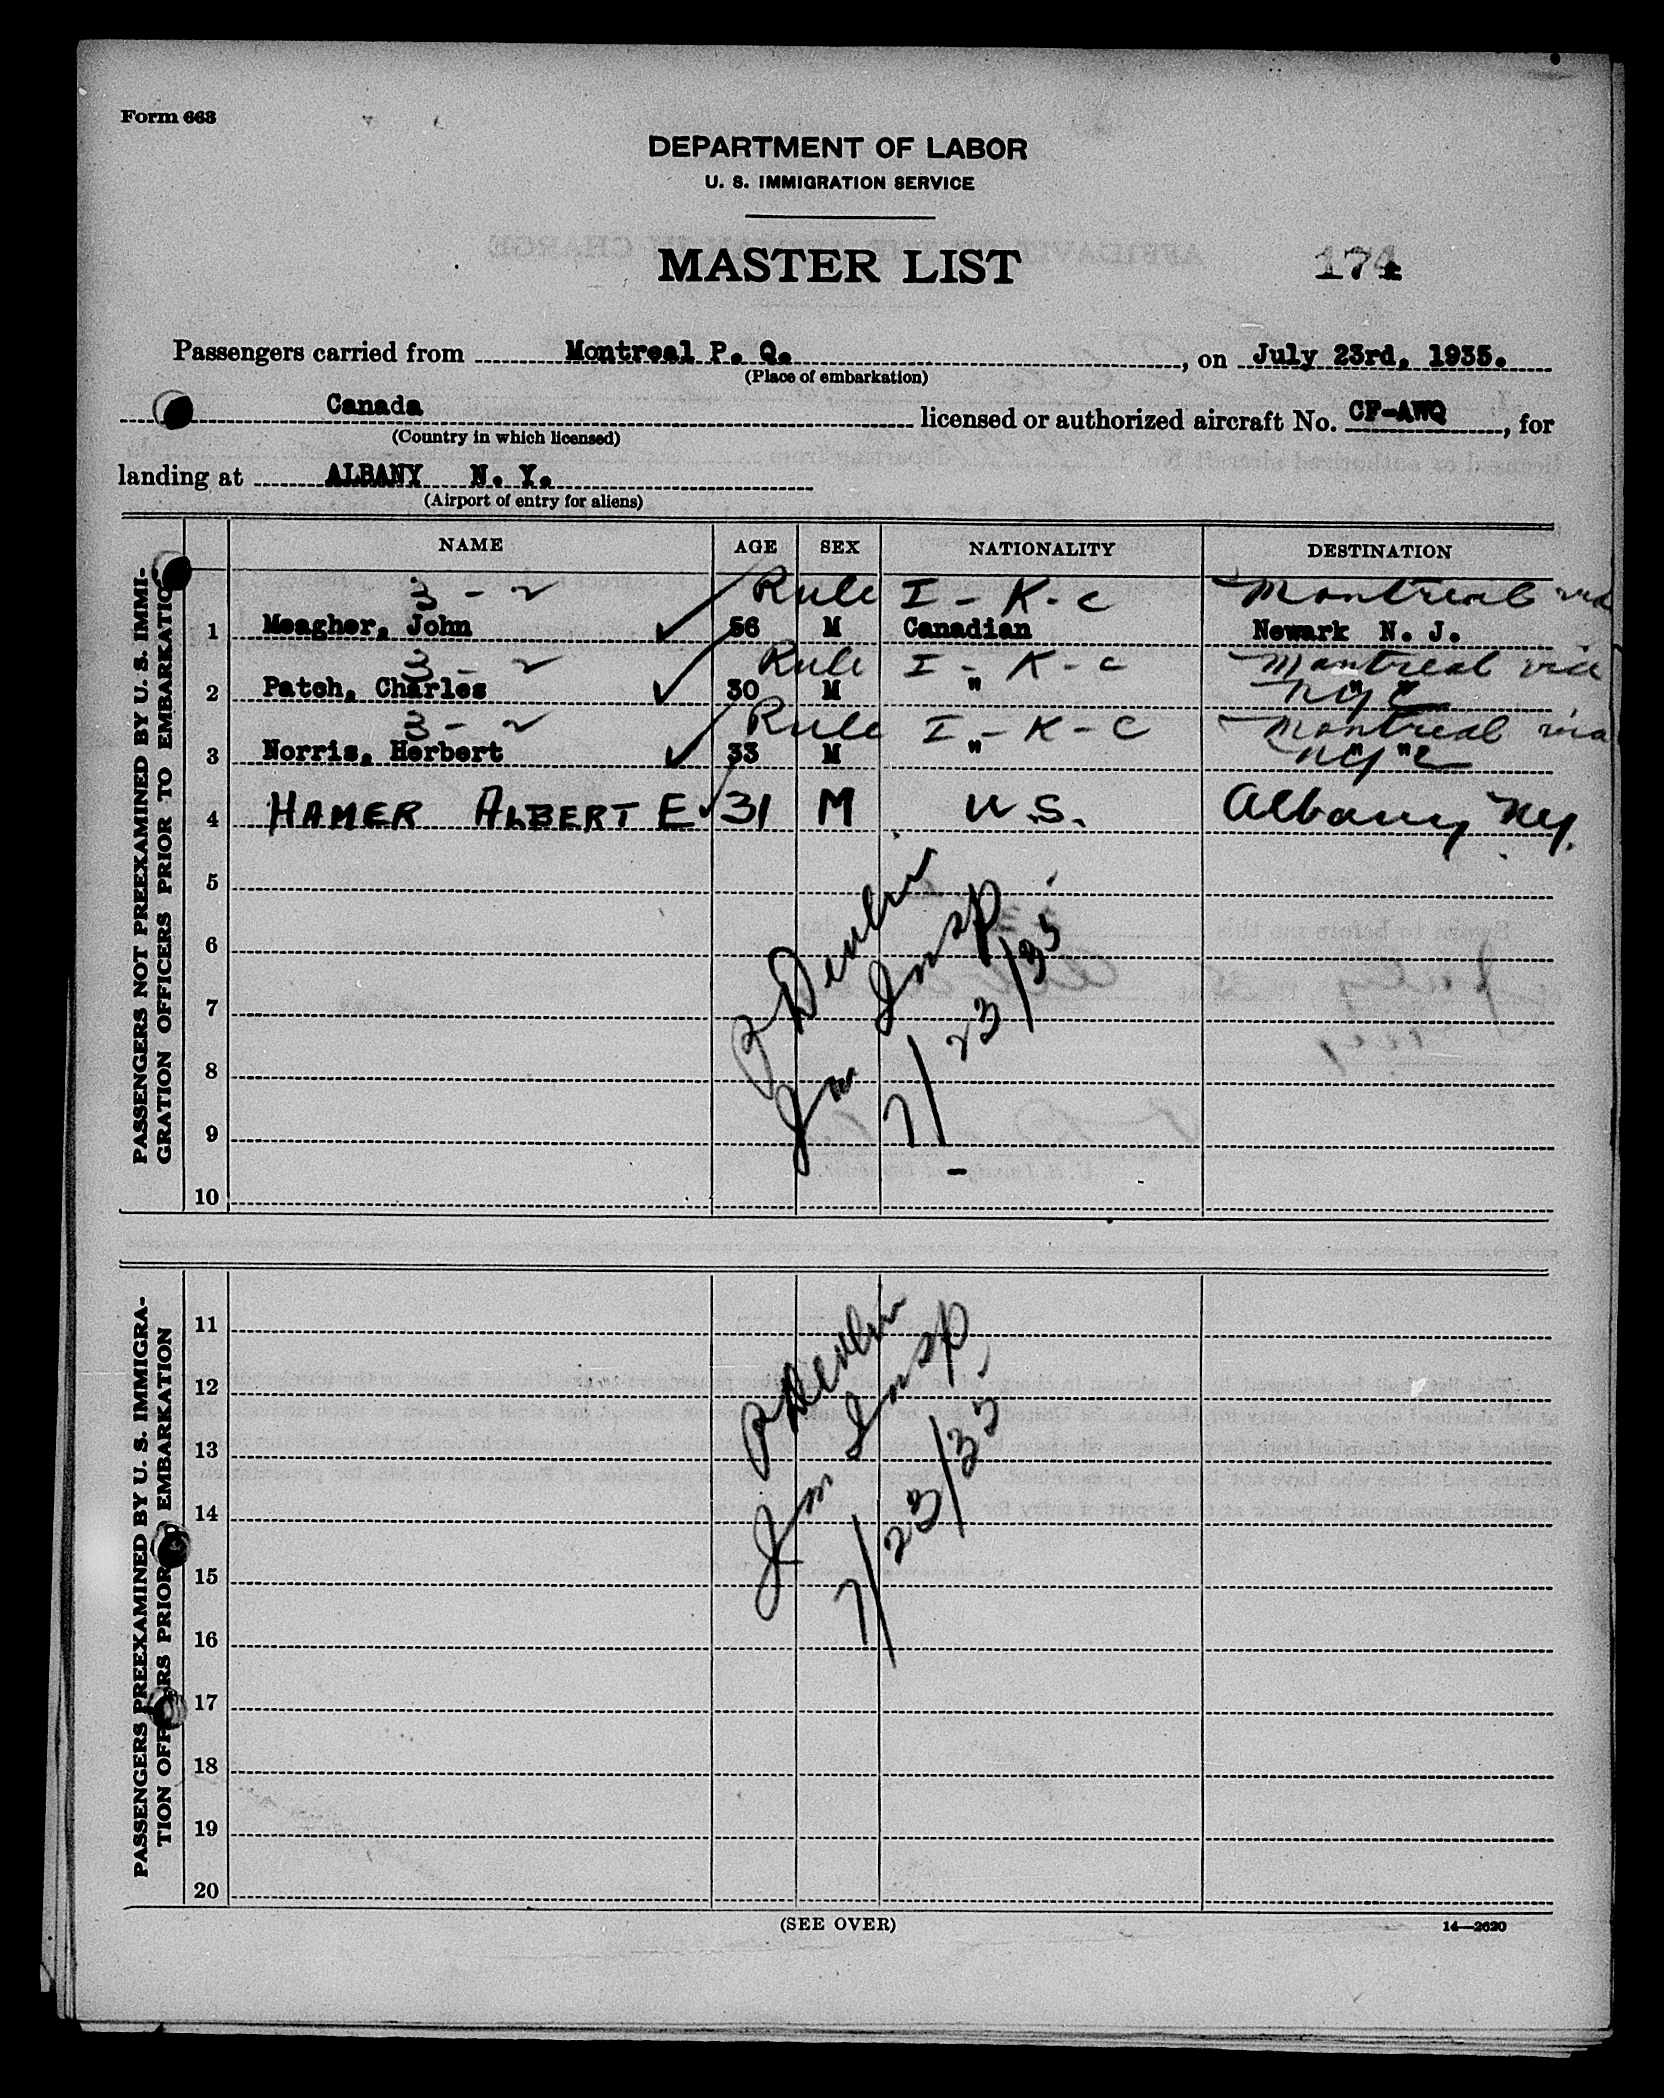 Form 663
DEPARTMENT OF LABOR
U. S. IMMIGRATION SERVICE
MASTER LIST
174
Passengers carried from Montreal P. Q., on July 23rd, 1935.
(Place of embarkation)
Canada licensed or authorized aircraft No. CF-AWQ, for
(Country in which licensed)
landing at ALBANY N. Y.
(Airport of entry for aliens)
NAME AGE SEX NATIONALITY DESTINATION
PASSENGERS NOT PREEXAMINED BY U. S. IMMI-
GRATION OFFICERS PRIOR TO EMBARKATION
3 - 2 Rule I - K - c Montreal via
1 Meagher, John 56 M Canadian Newark N. J.
3 - 2 Rule I - K - c Montreal via
2 Patch, Charles 30 M " " " NYC
3 - 2 Rule I - K - C Montreal via
3 Norris, Herbert 33 M " " " NYC
4 HAMER ALBERT E 31 M U.S. Albany NY.
5
6
7
8
9
10
P Devlin
Im Insp
7/23/35
PASSENGERS PREEXAMINED BY U. S. IMMIGRA-
TION OFFICERS PRIOR TO EMBARKATION
11
12
13
14
15
16
17
18
19
20
P Devlin
Im Insp
7/23/35
(SEE OVER)
14—2620